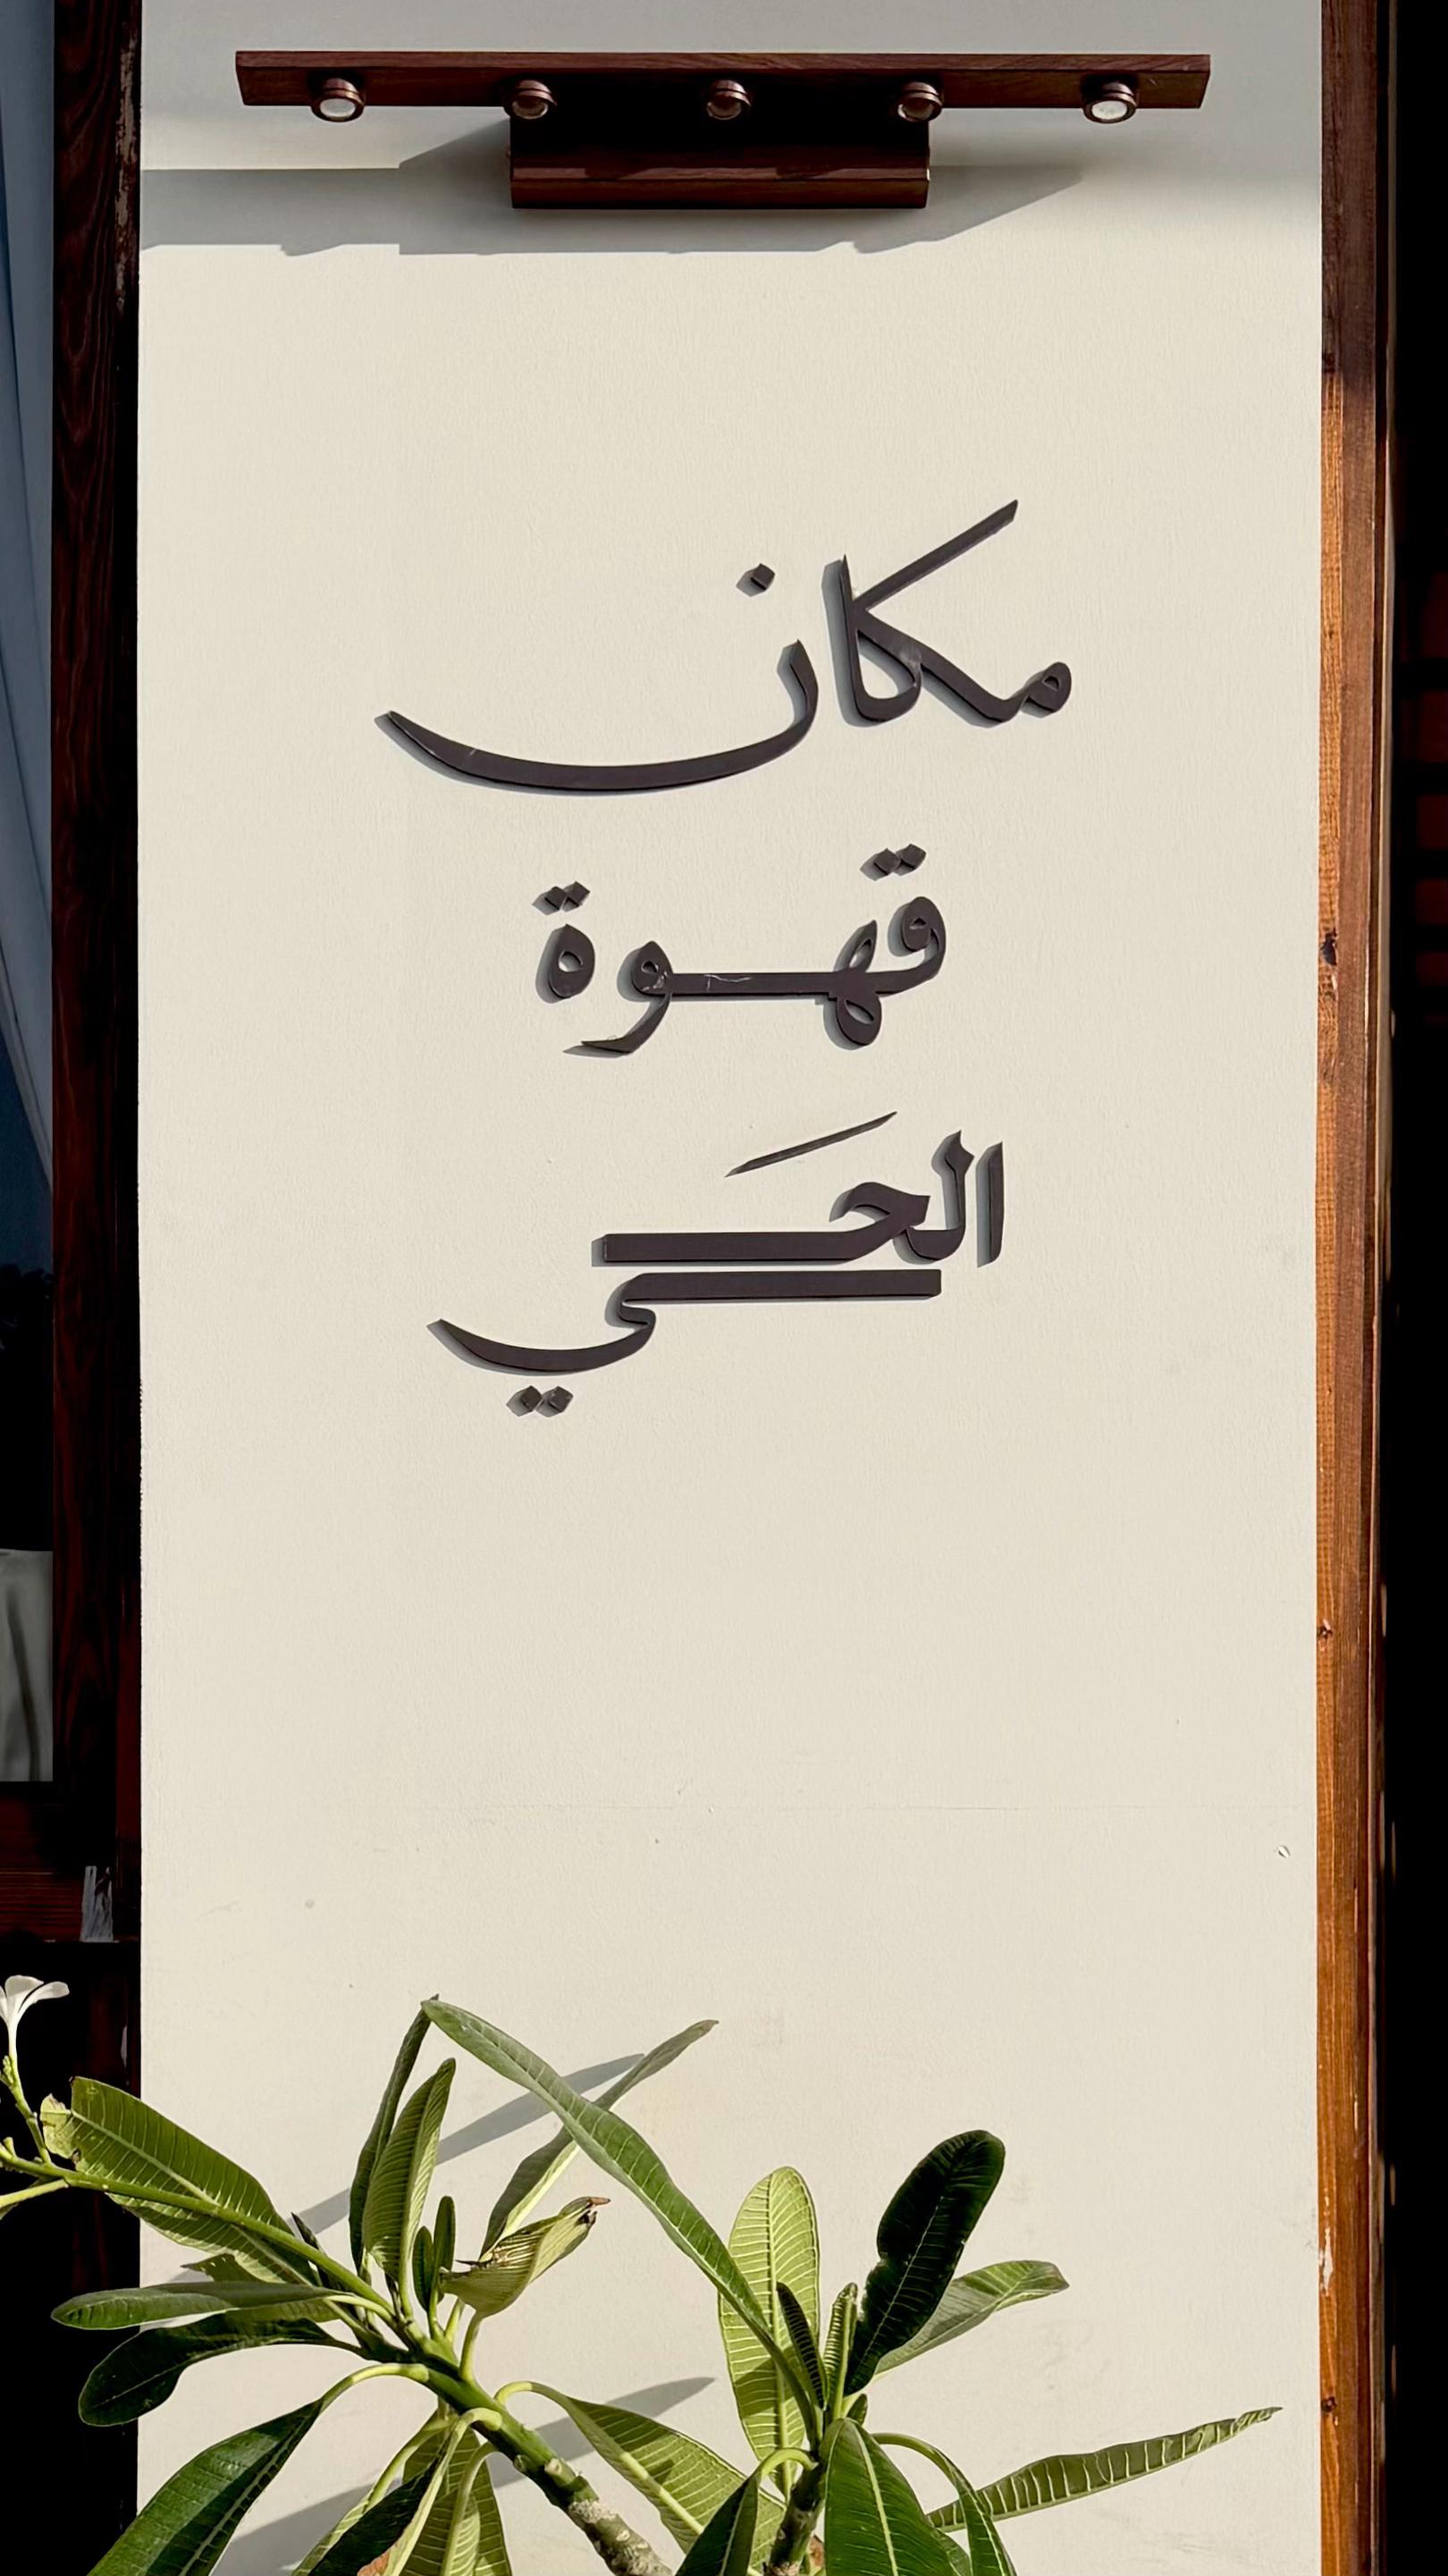 مكان
قهوة
الحَي